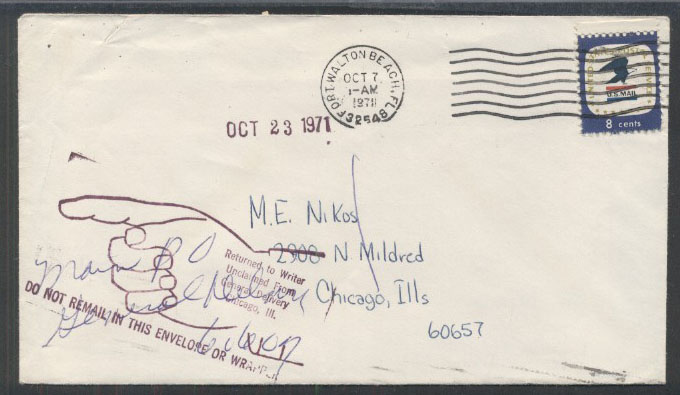 FORT WALTON BEACH, FL
OCT 7
1-AM
1971
32548
UNITED STATES POSTAL SERVICE
U.S. MAIL
8 cents
OCT 23 1971
M.E. Nikos
2900 N Mildred
Chicago, Ills
60657
Returned to Writer
Unclaimed From
General Delivery
Chicago, Ill.
Main P O
General Delivery
DO NOT REMAIL IN THIS ENVELOPE OR WRAPPER
General